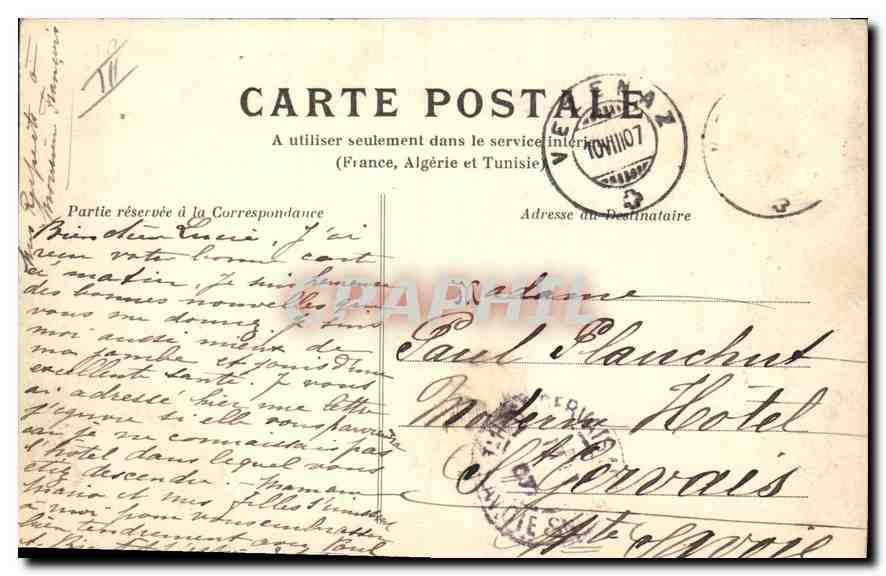 Respects à
Monsieur François
CARTE POSTALE
A utiliser seulement dans le service intérieur
(France, Algérie et Tunisie)
VEYENAZ
10VIII07
Partie réservée à la Correspondance
Adresse du Destinataire
Bien chère Lucie, J'ai
reçu votre bonne carte
ce matin, Je suis heureuse
des bonnes nouvelles que
vous me donnez. Je suis
moi aussi mieux de
ma jambe et jouis d'une
excellente santé. Je vous
ai adressé hier une lettre
J'ignore si elle vous parviendra
car je ne connaissais pas
l'hôtel dans lequel vous
étiez descendu. Maman
Maria et mes filles s'unissent
à moi pour vous embrasser
bien tendrement avec Paul
CPAPHIL
Madame
Paul Planchut
Modern Hôtel
St Gervais
Hte Savoie